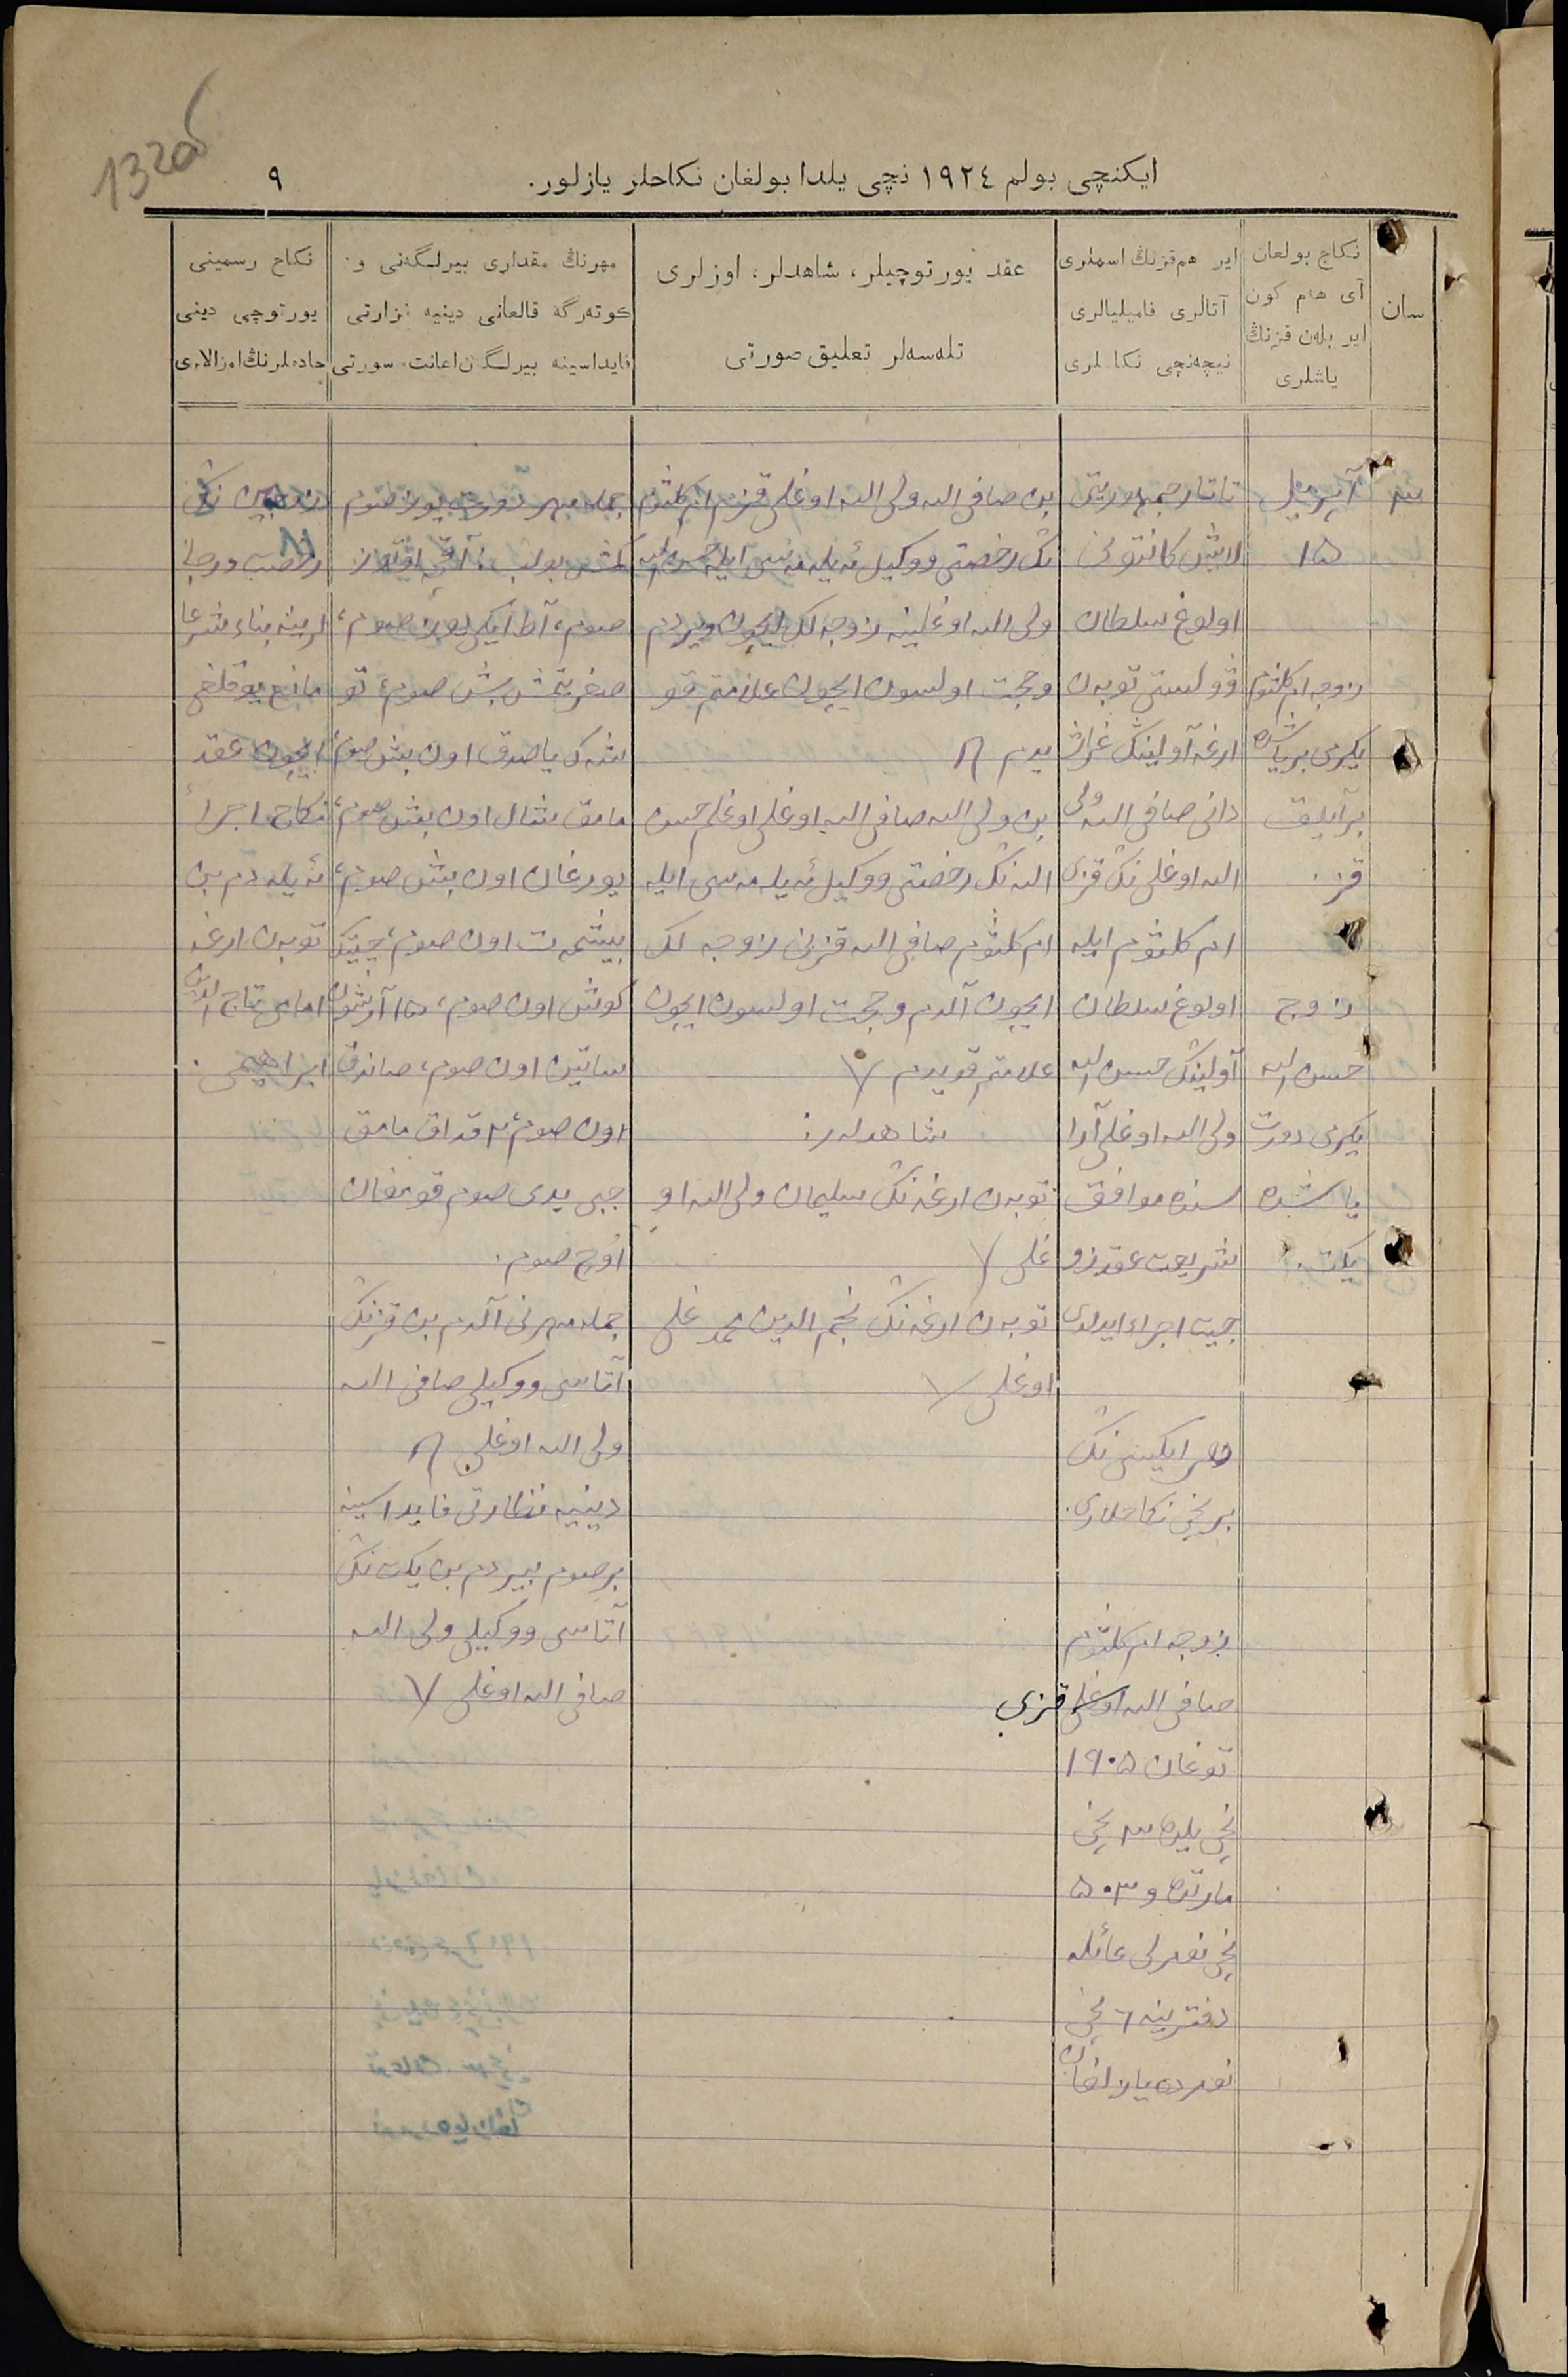 132об
ایکنچی بولم ١٩٢٤ نچی یلدا بولغان نکاحلر یازلور.
٩
سان
نکاح بولعان
آی هام کون
ایر بلەن قزنڭ
یاشلری
ایر هم قزنڭ اسملری
آتالری فامیلیالری
نیچەنچی نکاحلری
عقد یورتوچیلر، شاهدلر، اوزلری
تلەسەلر تعلیق صورتی
مهرنڭ مقداری بیرلگەنی و
کوتەرگە قالعانی دینیه نزارتی
فایداسینه بیرلگن اعانت سورتی
نکاح رسمینی
یورتوچی دینی
خادملرنڭ امزالاری
آپریل
١٥
زوجه ام کلثوم
یکرمی بر یاشده
بر آیلیق
قز.
زوج
حسن الله
یکرمی دورت
یاشده
یکت.
تاتار جمهوریتی
لایش کانتونی
اولوغ سلطان
وولستی توبەن
ارغه آولینڭ
صافی الله ولی
الله اوغلی نڭ قزی
ام کلثوم ایله
اولوغ سلطان
آولینڭ حسن الله
ولی الله اوغلی آرا
سنده موافق
شریعت عقد زو
جیت اجراء ایدلدی
هر ایکیسی نڭ
برنچی نکاحلاری.
زوجه ام کلثوم
صافی الله اوغلی قزی
توغان ١٩٠٥
نچی یلده نچی
مارتده و ٥٠٣
نچی نومرلی عائله
دفترینه ٦ نچی
نومرده یازلغان
بن صافی الله ولی الله اوغلی قزم ام کلثوم
نڭ رخصتی ووکیل ئەیلەمەسی ایله حسن الله
ولی الله اوغلینه زوجه لک ایچون ویردم
وحجت اولسون ایچون علامتم قو
یدم
بن ولی الله صافی الله اوغلی اوغلم حسن
الله نڭ رخصتی ووکیل ئەیلەمەسی ایله
ام کلثوم صافی الله قزینی زوجه لک
ایچون آلدم وحجت اولسون ایچون
علامتم قویدم
شاهدلر:
توبەن ارغه نڭ سلیمان ولی الله او
غلی
توبەن ارغه نڭ نجم الدین محمد علی
اوغلی
جمله مهر یوز صوم
صوم، آط ایکی یوز صوم،
صغر یتمش بش صوم، تو
شەک یاصدق اون بش صوم،
مامق شال اون بش صوم،
یورغان اون بش صوم،
بیشمەت اون صوم، چیتک
کوش اون صوم، ١٥ آرشون
ساتین اون صوم، صاندق
اون صوم، ٢ قداق مامق
جبی یدی صوم قومغان
اوچ صوم.
جمله مهرنی آلدم بن قزنڭ
آتاسی ووکیلی صافی الله
ولی الله اوغلی
دینیه نظارتی فایداسینه
بر صوم بیردم بن یکت نڭ
آتاسی ووکیلی ولی الله
صافی الله اوغلی
زوجین نڭ
لرینه بناء شرعا
مانع یوقلغی
ایچون عقد
نکاح اجراء
ئەیلەدم بن
توبەن ارغه
امامی تاج الدین
ابراهیمی.